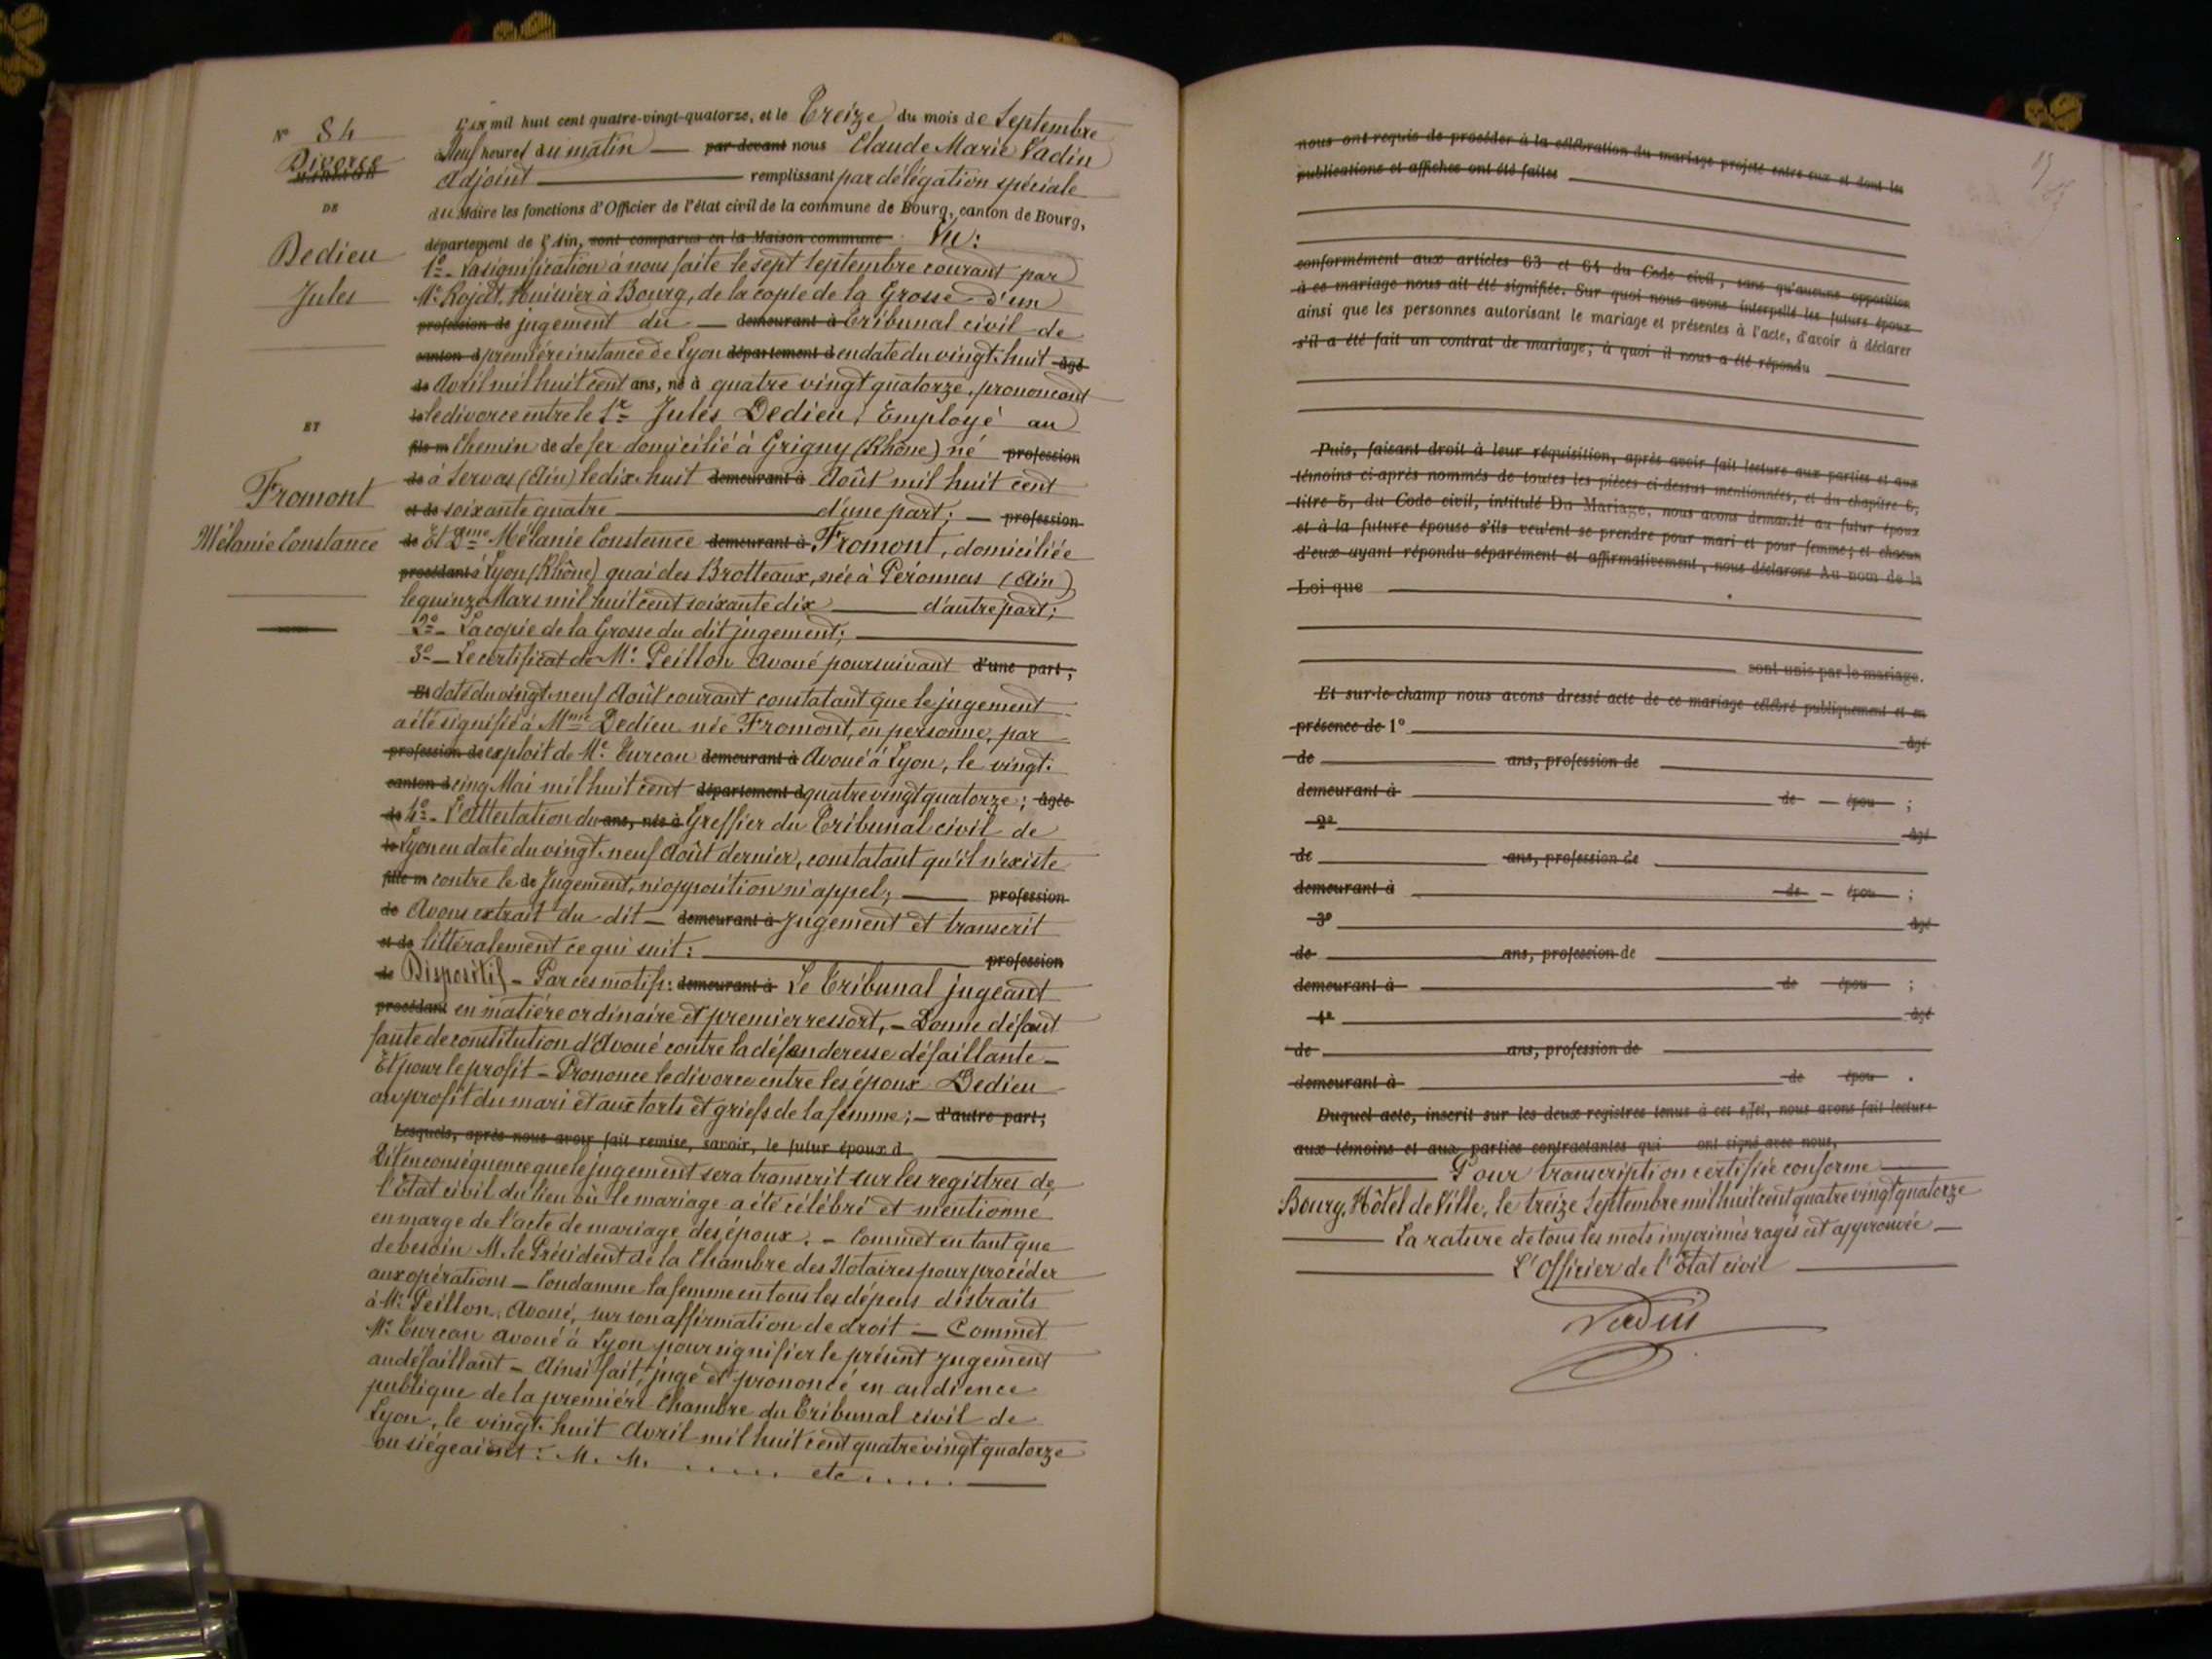 N° 84
Divorce
DE
Dedieu
Jules
ET
Fromont
Mélanie Constance
L'an mil huit cent quatre-vingt-quatorze, et le Treize du mois de Septembre
à Neuf heures du matin — par-devant nous Claude Marie Vadin
Adjoint — remplissant par délégation spéciale
du Maire les fonctions d'Officier de l'état civil de la commune de Bourg, canton de Bourg,
département de l'Ain, sont comparus en la Maison commune Vu:
1° - La signification à nous faite le sept Septembre courant par
Me Rojat, Huissier à Bourg, de la copie de la Grosse d'un
profession de jugement du — demeurant à Tribunal civil de
canton d première instance de Lyon département d en date du vingt-huit âgé
de Avril mil huit cent ans, né à quatre vingt quatorze, prononçant
le le divorce entre le Sr Jules Dedieu, Employé au
fils m Chemin de de fer domicilié à Grigny (Rhône) né profession
de à Servas (Ain) le dix-huit demeurant à Août mil huit cent
et de soixante quatre — d'une part; — profession
de Et Dme Mélanie Constance demeurant à Fromont, domiciliée
procédant à Lyon (Rhône) quai des Brotteaux, née à Péronnas (Ain)
le quinze Mars mil huit cent soixante dix — d'autre part;
2° - La copie de la Grosse du dit jugement; —
3° — Le certificat de Me Peillon Avoué poursuivant d'une part;
Et daté du vingt-neuf Août courant constatant que le jugement
a été signifié à Mme Dedieu née Fromont, en personne, par
profession de exploit de Me Tureau demeurant à Avoué à Lyon, le vingt-
canton d cinq Mai mil huit cent département d quatre vingt quatorze; âgée
de 4° - L'Attestation du ans, née à Greffier du Tribunal civil de
le Lyon en date du vingt-neuf Août dernier, constatant qu'il n'existe
fille m contre le de Jugement, ni opposition ni appel; — profession
de Avons extrait du dit — demeurant à Jugement et transcrit
et de littéralement ce qui suit: — profession
de Dispositif - Par ces motifs: demeurant à Le Tribunal jugeant
procédant en matière ordinaire et premier ressort, - Donne défaut
faute de constitution d'Avoué contre la défenderesse défaillante -
Et pour le profit - Prononce le divorce entre les époux Dedieu
au profit du mari et aux torts et griefs de la femme; — d'autre part;
Lesquels, après nous avoir fait remise, savoir, le futur époux d
Dit en conséquence que le jugement sera transcrit sur les registres de
l'Etat civil du lieu où le mariage a été célébré et mentionné
en marge de l'acte de mariage des époux. - Commet en tant que
de besoin M. le Président de la Chambre des Notaires pour procéder
aux opérations — Condamne la femme en tous les dépens distraits
à Me Peillon, Avoué, sur son affirmation de droit — Commet
Me Tureau avoué à Lyon pour signifier le présent Jugement
au défaillant - Ainsi fait, jugé et prononcé en audience
publique de la première Chambre du Tribunal civil de
Lyon, le vingt-huit Avril mil huit cent quatre vingt quatorze
ou siégeaient: M. M. ..... etc .....
nous ont requis de procéder à la célébration du mariage projeté entre eux et dont les
publications et affiches ont été faites
conformément aux articles 63 et 64 du Code civil, sans qu'aucune opposition
à ce mariage nous ait été signifiée. Sur quoi nous avons interpellé les futurs époux
ainsi que les personnes autorisant le mariage et présentes à l'acte, d'avoir à déclarer
s'il a été fait un contrat de mariage; à quoi il nous a été répondu
Puis, faisant droit à leur réquisition, après avoir fait lecture aux parties et aux
témoins ci-après nommés de toutes les pièces ci-dessus mentionnées, et du chapitre 6,
titre 5, du Code civil, intitulé Du Mariage, nous avons demandé au futur époux
et à la future épouse s'ils veulent se prendre pour mari et pour femme; et chacun
d'eux ayant répondu séparément et affirmativement, nous déclarons Au nom de la
Loi que
sont unis par le mariage.
Et sur-le-champ nous avons dressé acte de ce mariage célébré publiquement et en
présence de 1° âgé
de ans, profession de
demeurant à de — épou ;
2° âgé
de ans, profession de
demeurant à de — épou ;
3° âgé
de ans, profession de
demeurant à de épou ;
4° âgé
de ans, profession de
demeurant à de épou .
Duquel acte, inscrit sur les deux registres tenus à cet effet, nous avons fait lecture
aux témoins et aux parties contractantes qui ont signé avec nous,
Pour transcription certifiée conforme
Bourg, Hôtel de Ville, le treize Septembre mil huit cent quatre vingt quatorze
La rature de tous les mots imprimés rayés est approuvée
L'Officier de l'Etat civil
Vadin